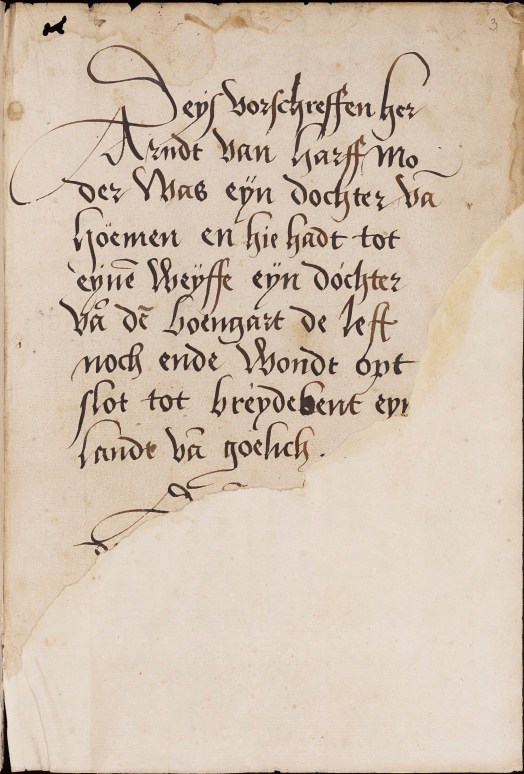 3
Deys vorschreffen her
Arndt van harff mo
der Was eÿn dochter vā
höemen en hie hadt tot
eÿnē Weÿffe eÿn dochter
vā dē boengart de leff
noch ende Wondt opt
slot tot breÿdebent eyn
landt vā goëlich.